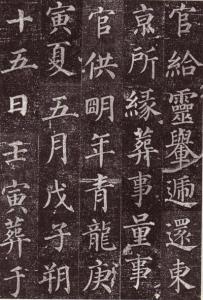 官給靈轝遞還東
亰所緣葬事量事
官供明年青龍庚
寅夏五月戊子朔
十五日壬寅葬于